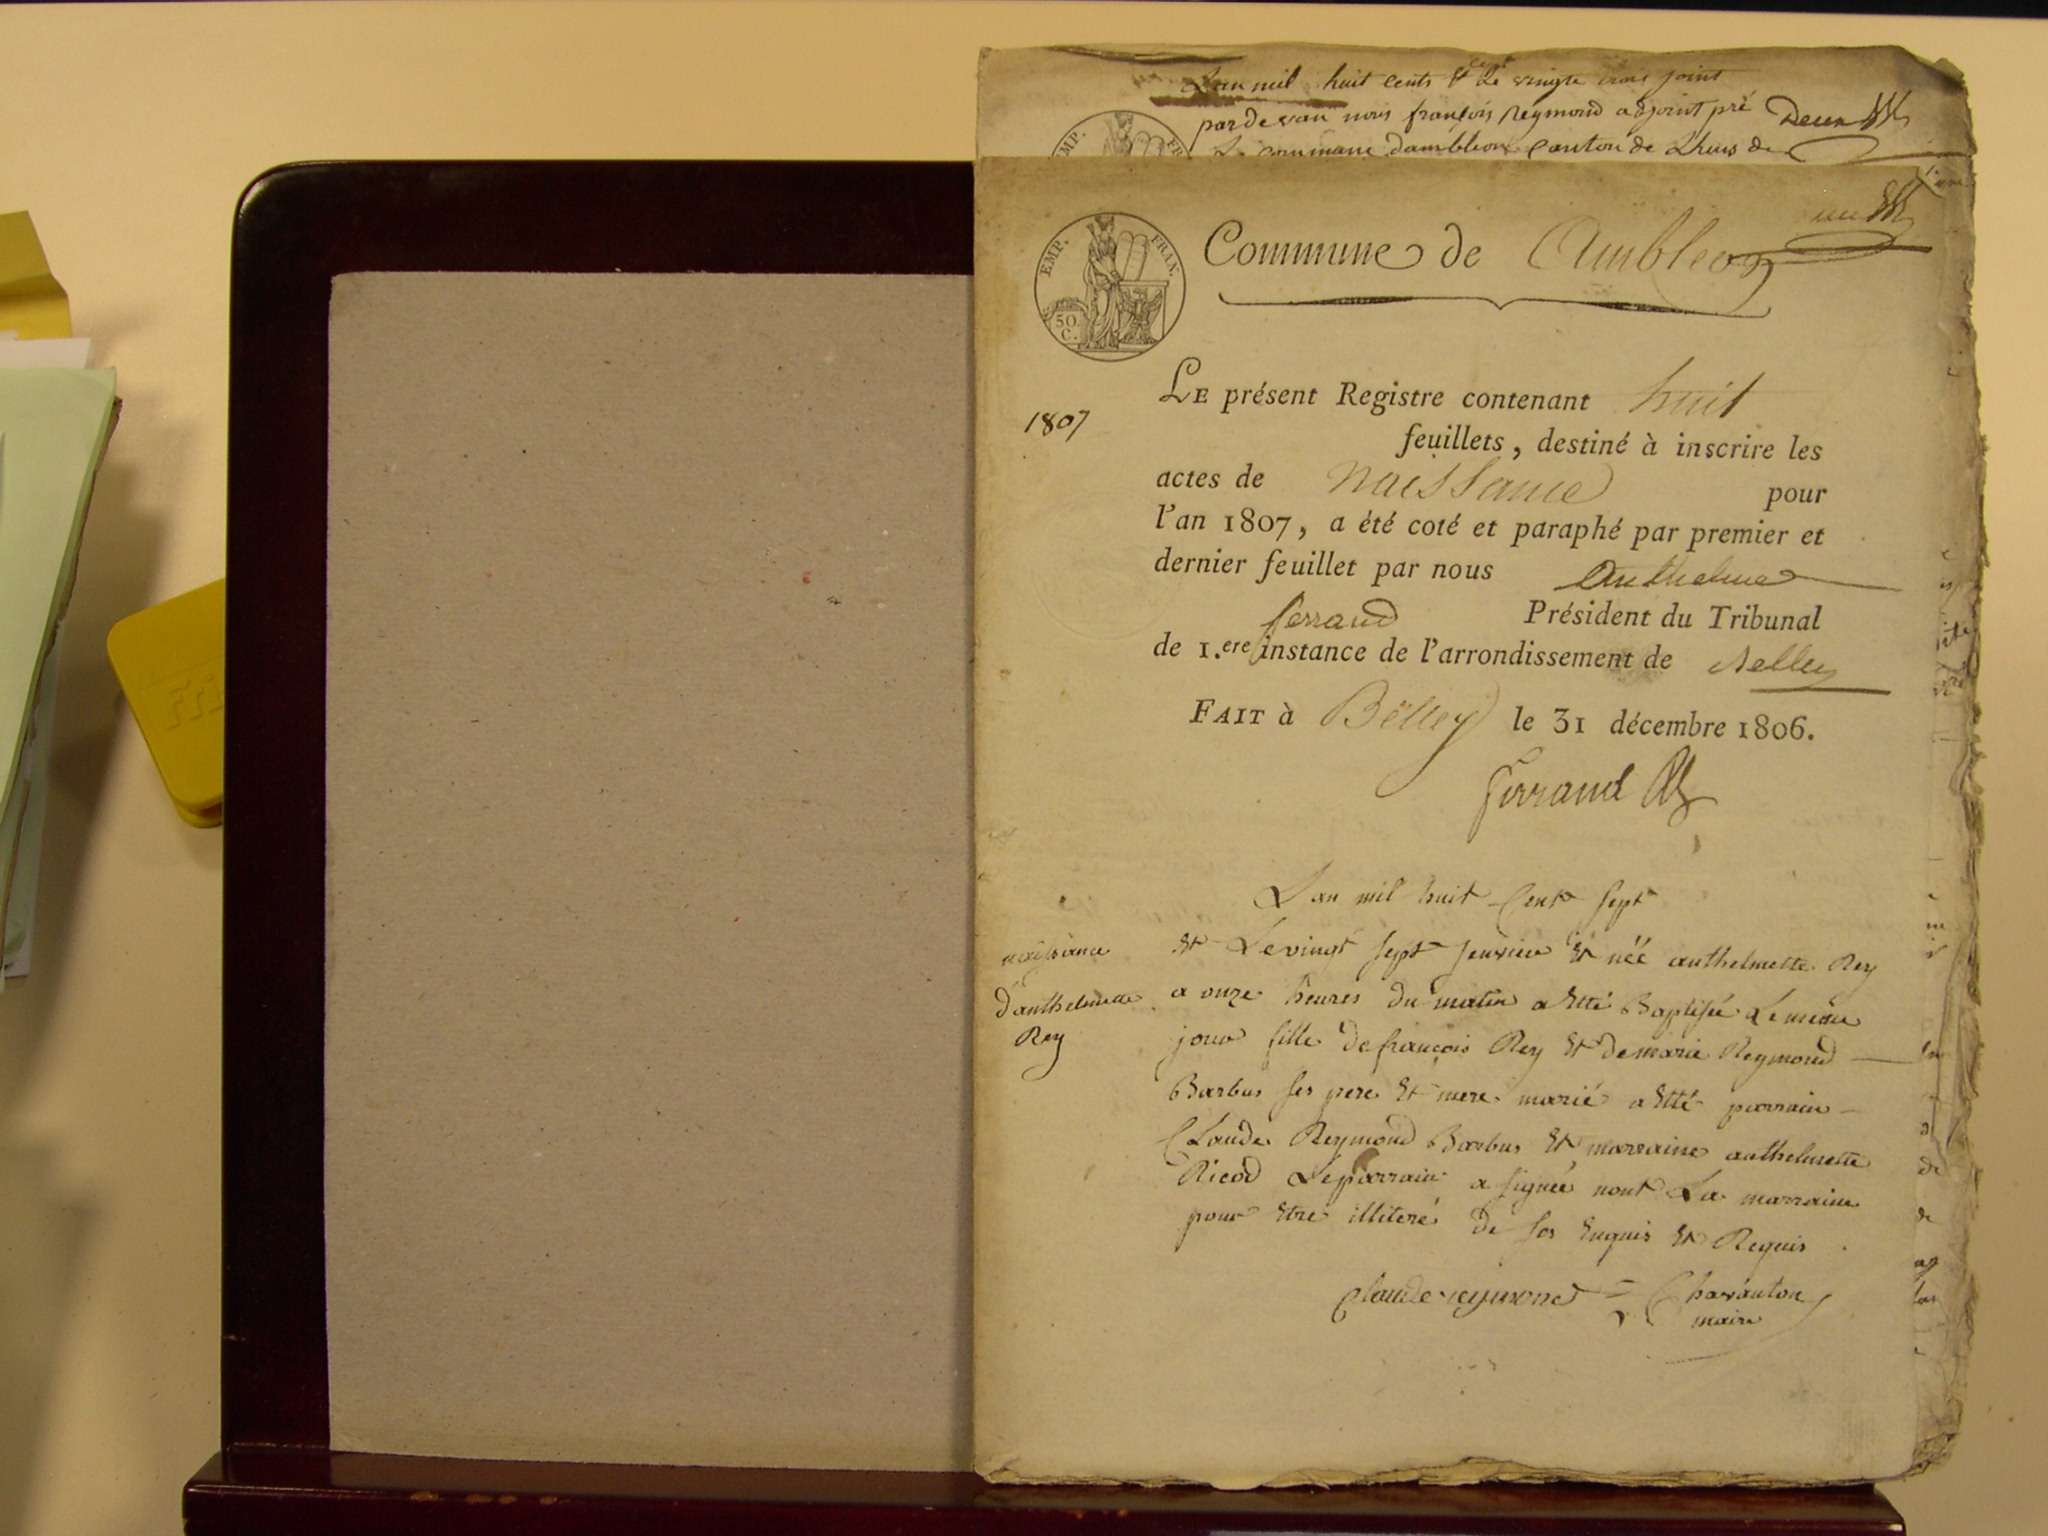 Lan mil huit cents sept & Le vingte trois joint
pardevan nous françois Reymond adjoint pré
Deux
La commune dambléon Canton de Lhuis de
un
EMP. FRAN.
50.
C.
Commune de Ambleon
1807
LE présent Registre contenant huit
feuillets, destiné à inscrire les
actes de naissance pour
l'an 1807, a été coté et paraphé par premier et
dernier feuillet par nous Anthelme
ferrand Président du Tribunal
de 1.ere instance de l'arrondissement de Belley
FAIT à Bëlley le 31 décembre 1806.
ferrand
Lan mil huit Cent Sept
naissance
d'anthelmette
Rey
Et Le vingt Sept Jenvier Et néé anthelmette Rey
a onze heures du matin a Etté Baptisée Le même
jour fille de françois Rey Et de marie Reymond
Barbus ses pere Et mere marié a Etté parrain
Claude Reymond Barbus Et marraine anthelmette
Ricod Le parrain a signée nont La marraine
pour Etre illiteré De Sos Enquis Et Requis
Claude reymond
Charanton
maire